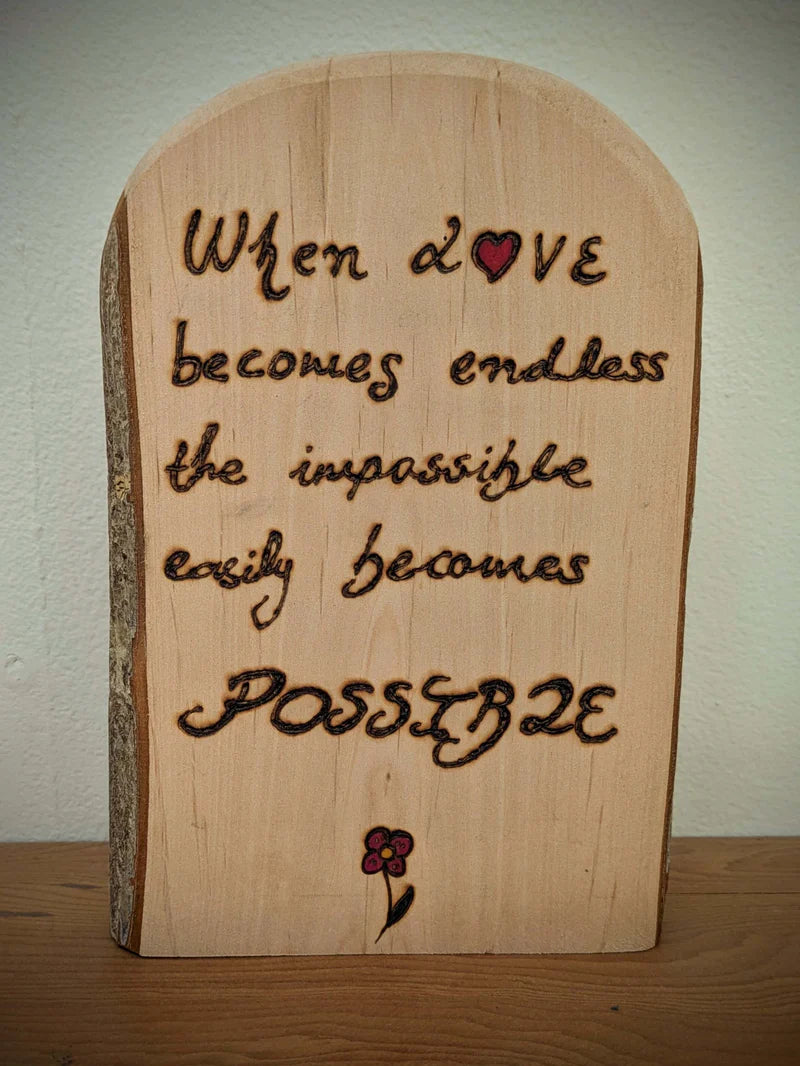 When LOVE
becomes endless
the impossible
easily becomes
POSSIBLE